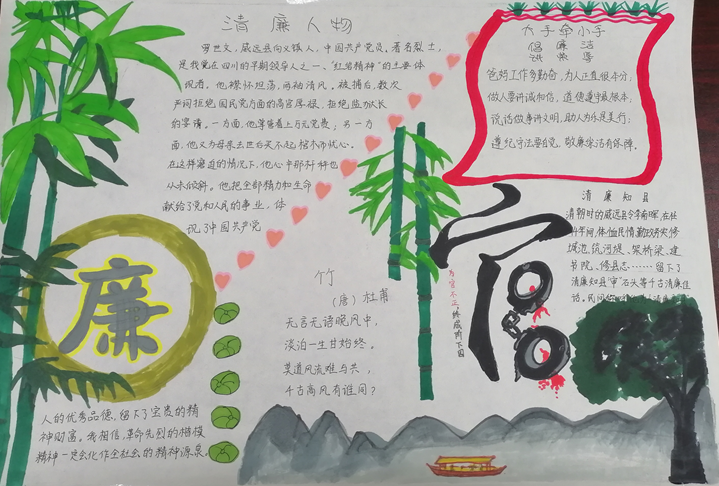 清廉人物
罗世文，威远县向义镇人，中国共产党员。著名烈士，
是我党在四川的早期领导人之一、“红岩精神”的主要体
现者。他襟怀坦荡，两袖清风。被捕后，数次
严词拒绝国民党方面的高官厚禄，拒绝监狱长
的宴请。一方面，他掌管着上万元党费；另一方
面，他又为母亲去世后买不起棺木而忧心。
在这样窘迫的情况下，他心中那杆秤也
从未倾斜。他把全部精力和生命
献给了党和人民的事业，体
现了中国共产党
人的优秀品德，留下了宝贵的精
神财富。我相信，革命先烈的楷模
精神一定会化作全社会的精神源泉。
廉
竹
（唐）杜甫
无言无语晚风中，
淡泊一生甘始终。
莫道风流难与共，
千古高风有谁同？
大手牵小手
倡廉洁
共
爸妈工作多勤奋，为人正直很本分；
做人要讲诚和信，道德遵守最根本；
说话做事讲文明，助人为乐是美行；
遵纪守法要自觉，敬廉崇洁有保障。
官
为官不正，终成阶下囚
清廉知县
清朝时的威远县令李南晖，在任
年间，体恤民情，勤政务实，修
城池、筑河堤、架桥梁、建
书院、修县志……留下了
清廉知县“审”石头等千古清廉佳
话。民间